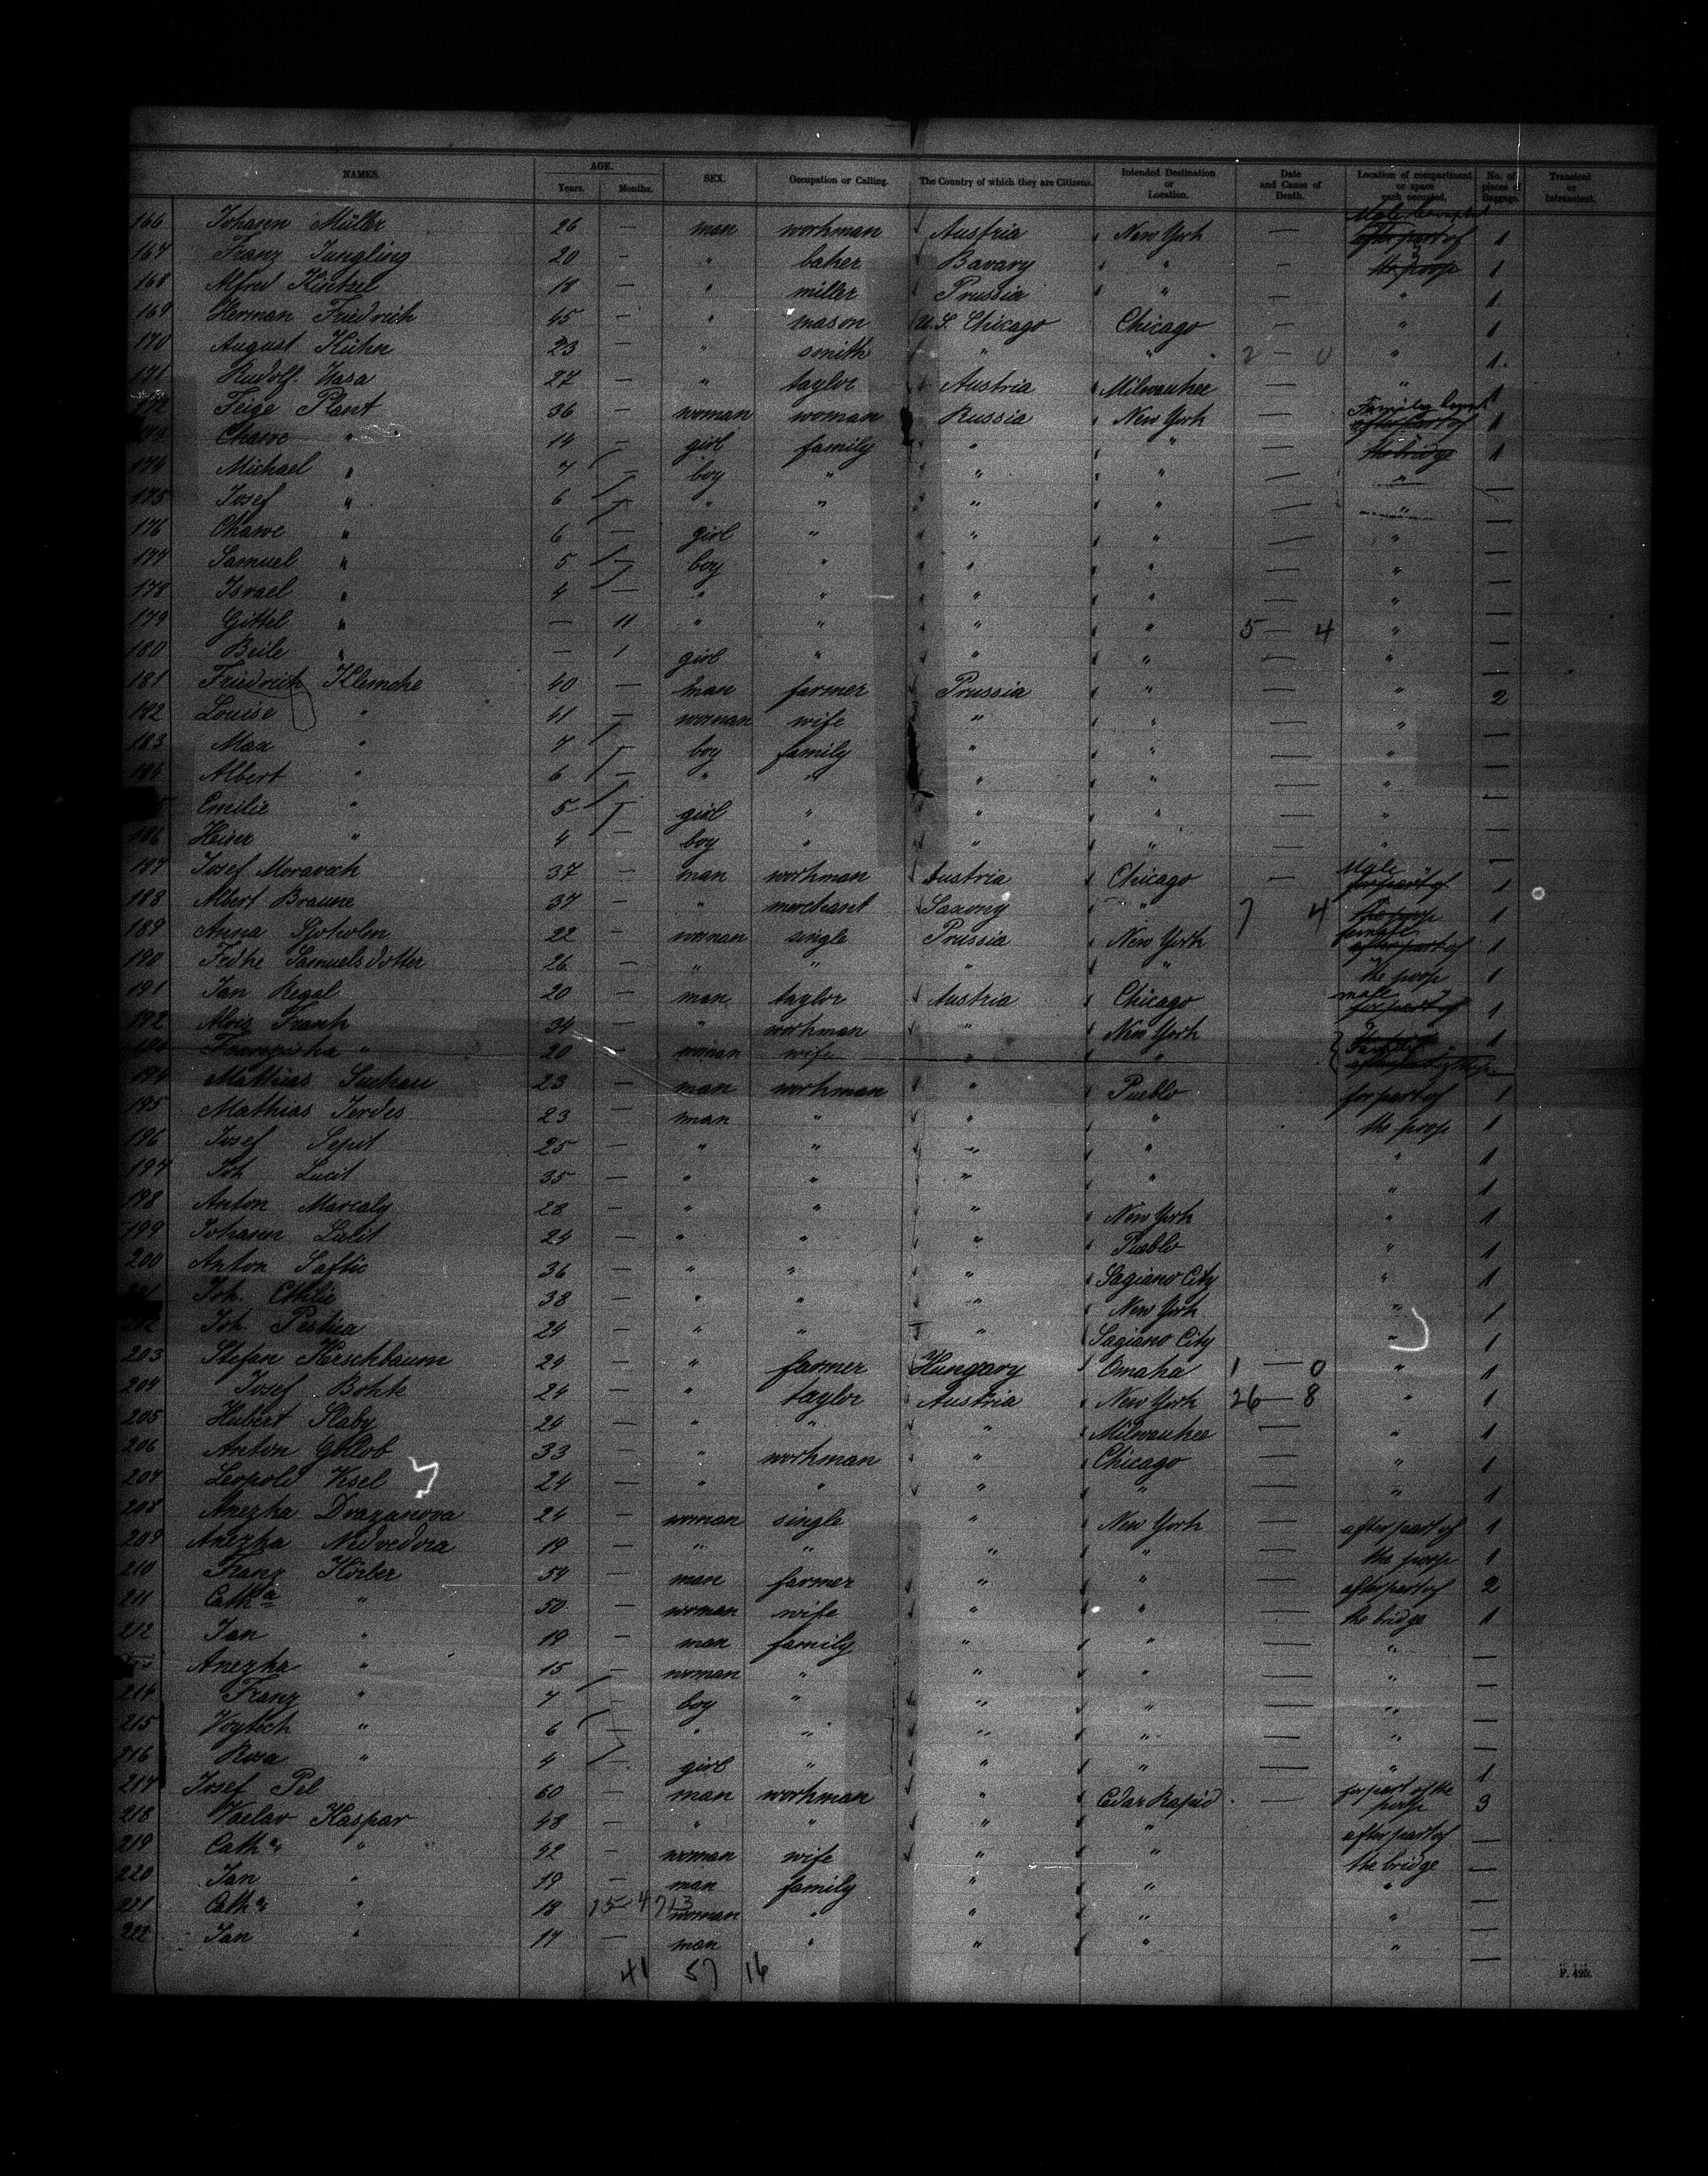 NAMES. AGE. Years. Months. SEX. Occupation or Calling. The Country of which they are Citizens. Intended Destination or Location. Date and Cause of Death. Location of compartment or space each occupied. No. of pieces of Baggage. Transient or Intransient.
166 Johann Müller 26 — man workman Austria New York — after part of 1
167 Franz Jungling 20 — " baker Bavary " — the poop 1
168 Alfred Kintzel 18 — " miller Prussia " — " 1
169 Herman Friedrich 45 — " mason U.S. Chicago Chicago — " 1
170 August Kühn 23 — " smith " " 2 — 0 " 1
171 Rudolf Nasa 27 — " taylor Austria Milwaukee — " 1
172 Feige Plant 36 — woman woman Russia New York — after part of 1
173 Chawe " 14 — girl family " " — the bridge 1
174 Michael " 7 — boy " " " — " —
175 Josef " 6 — " " " " — " —
176 Chawe " 6 — girl " " " — " —
177 Samuel " 5 — boy " " " — " —
178 Israel " 4 — " " " " — " —
179 Gittel " — 11 " " " " 5 — 4 " —
180 Beile " — 1 girl " " " — " —
181 Friedrich Klemcke 40 — man farmer Prussia " — " 2
182 Louise " 41 — woman wife " " — " —
183 Max " 7 boy family " " — " —
Albert " 6 — " " " " — " —
Emilie " 5 — girl " " " — " —
186 Heiner " 4 — boy " " " — " —
187 Josef Moravech 37 — man workman Austria Chicago — Male for part of 1
188 Albert Braune 37 — " merchant Saxony " 7 4 the poop 1
189 Anna Sjoholm 22 — woman single Prussia New York female after part of 1
190 Samuelsdotter 26 — " " " " the poop 1
191 Jan Regal 20 — man taylor Austria Chicago male for part of 1
192 Alois Frank 34 — " workman " New York 1
Franziska " 20 — woman wife " " —
194 Mathias 23 — man workman " Pueblo for part of 1
195 Mathias Jerdes 23 — man " " " the poop 1
196 Josef Sepit 25 — " " " " " 1
197 Joh Lucit 35 — " " " " " 1
198 Anton Marcaly 28 — " " " New York " 1
199 Johann Lulit 24 — " " " Pueblo " 1
200 Anton Saftic 36 — " " " Sagiano City " 1
Joh. 38 — " " " New York " 1
Joh. Peshica 24 — " " " Sagiano City " 1
203 Stefan Kerschbaum 24 — " farmer Hungary Omaha 1 — 0 " 1
204 Josef Bohte 24 — " taylor Austria New York 26 — 8 " 1
205 Hubert Slaby 24 — " " " Milwaukee — " 1
206 Anton Gollob 33 — " workman " Chicago — " 1
207 Leopold Vesel 24 — " " " " — " 1
208 Anezka Drazanova 24 — woman single " New York — after part of 1
209 Anezka Nedvedvea 19 — " " " " — the poop 1
210 Franz Körber 54 — man farmer " " — after part of 2
211 Catha " 50 — woman wife " " — the bridge 1
212 Jan " 19 — man family " " — " —
Anezka " 15 — woman " " " — " —
214 Franz " 7 — boy " " " — " —
215 Voytech " 6 — " " " " — " —
216 Rosa " 4 girl " " " — " 1
217 Josef Pel 60 — man workman " Cedar Rapid — for part of the poop 3
218 Vaclav Kaspar 48 — " " " " after part of —
219 Catha " 42 — woman wife " " the bridge —
220 Jan " 19 — man family " " " —
221 Catha " 18 woman " " " " —
222 Jan " 17 — man " " " " —
41 57 16
P. 425.